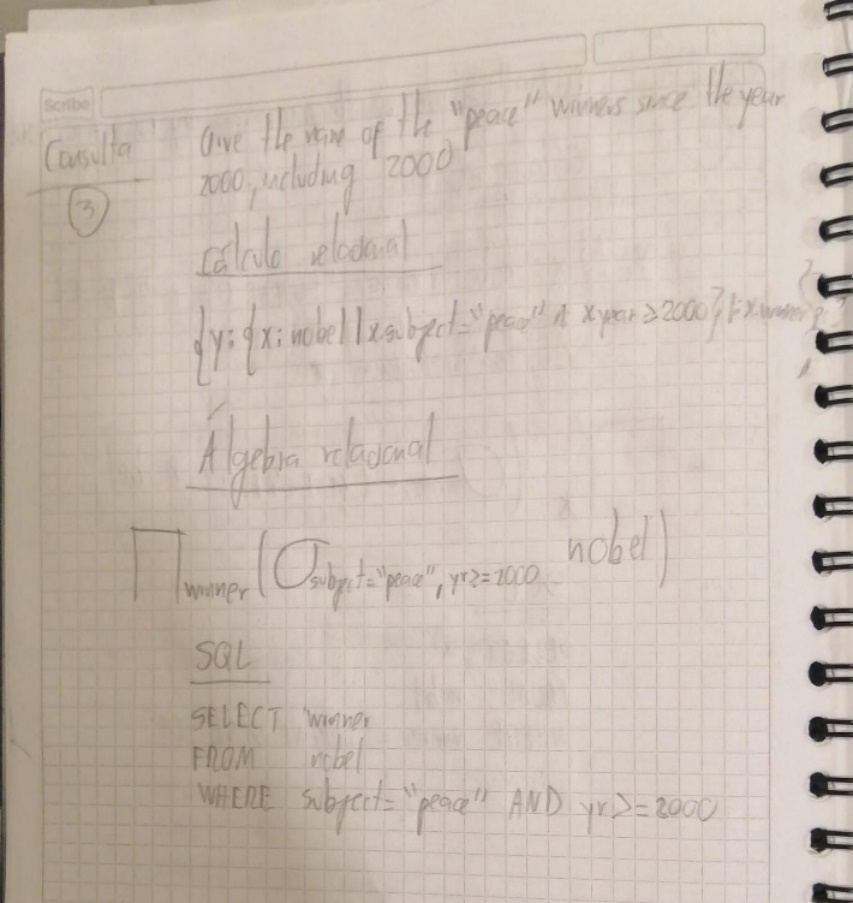 Scribe
Consulta Give the name of the "peace" winners since the year
2000, including 2000
3
Cálculo relacional
{y:{x:nobel | x.subject="peace" ∧ x.year≥2000} | x.winner}
Álgebra relacional
∏winner(σsubject="peace", yr>=2000 nobel)
SQL
SELECT winner
FROM nobel
WHERE subject="peace" AND yr>=2000